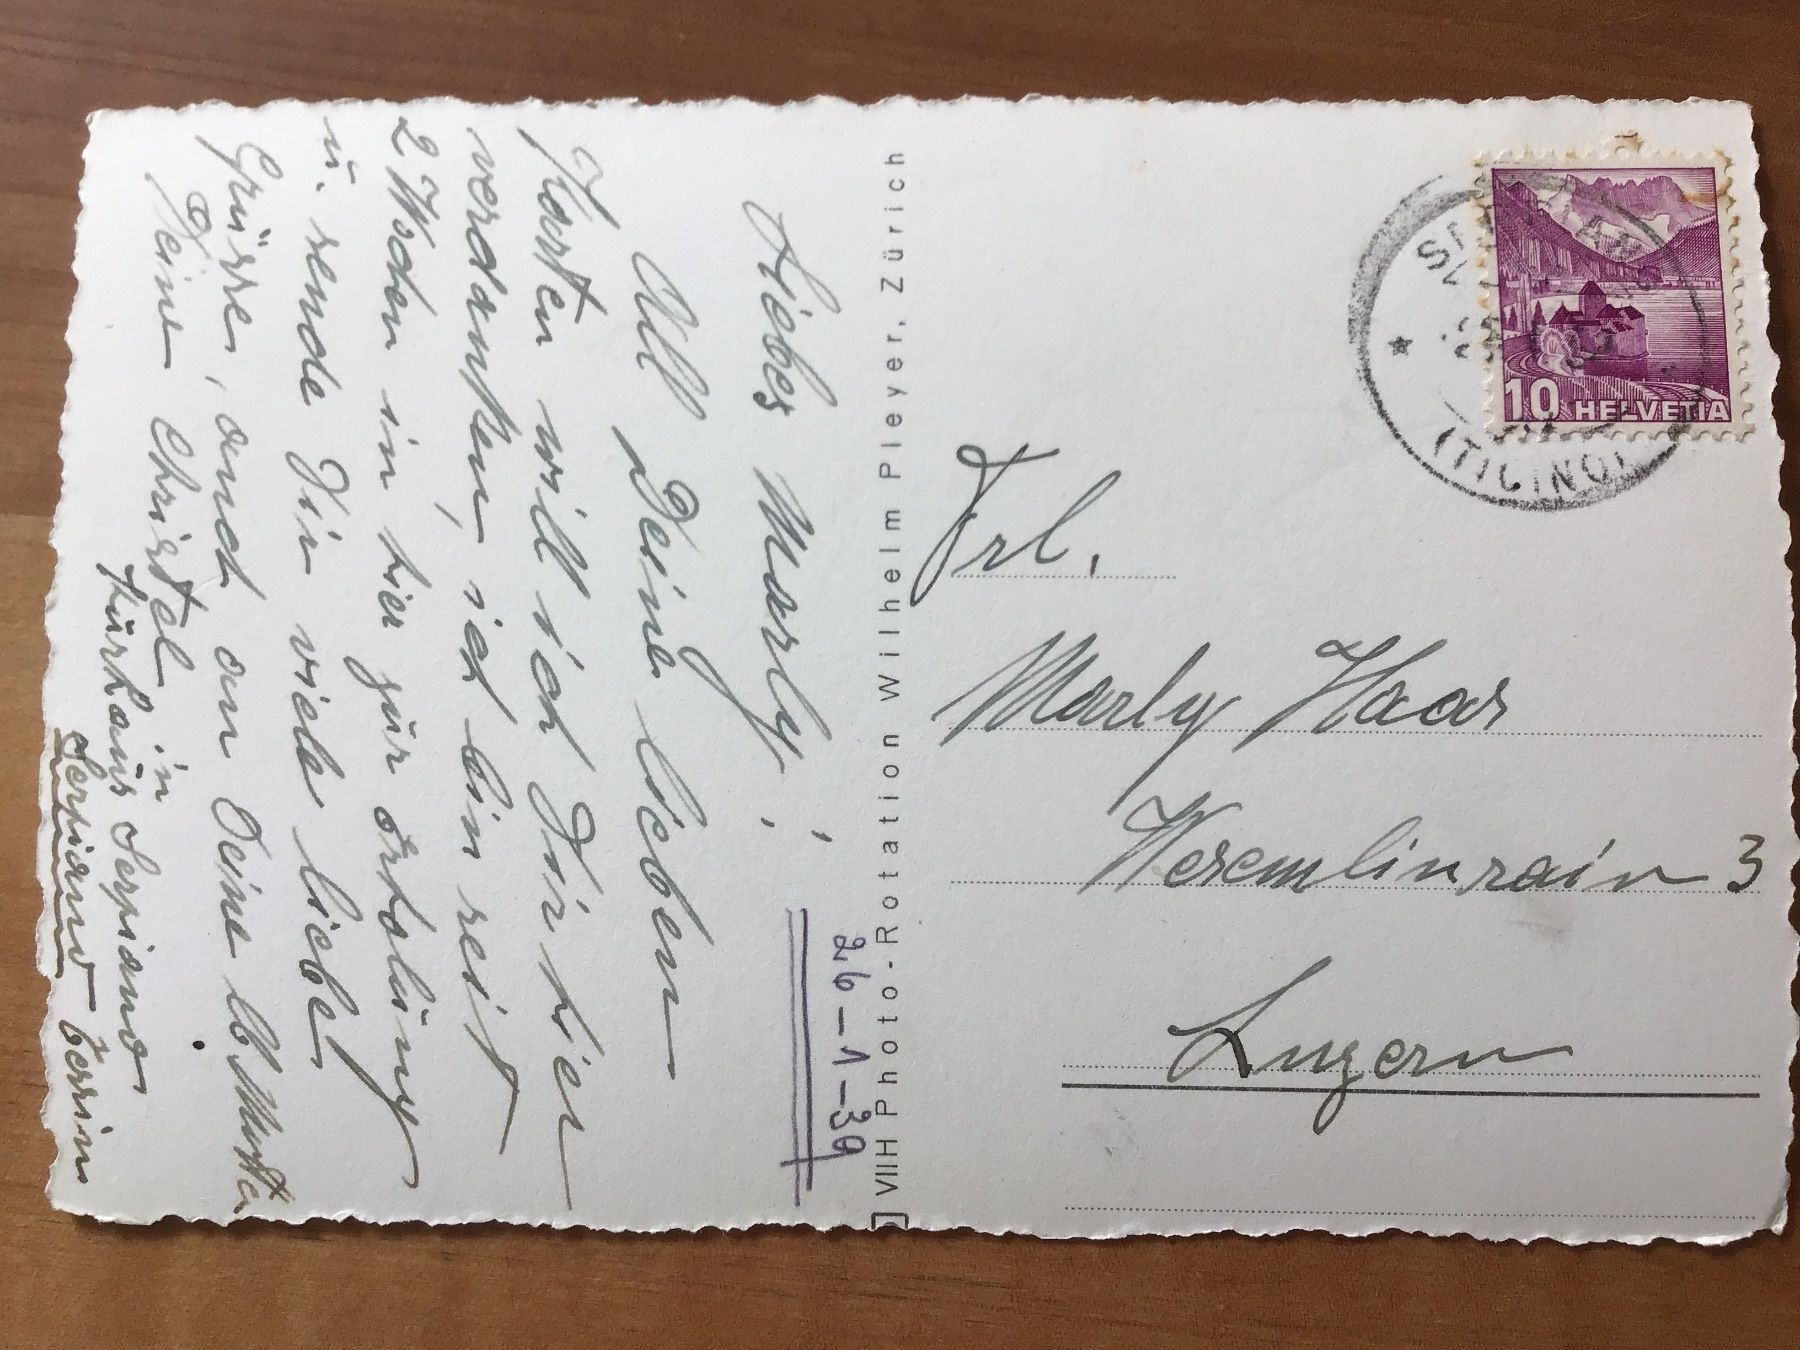 26-1-39
Liebes Marly!
All Deine lieben
Karten will ich Dir hier
verdanken, ich bin seit
2 Wochen in hier zur Erholung
u. sende Dir viele liebe
Grüsse, auch an Deine lb Mutter
Deine Christel
in
Kurhaus Serpiano
Serpiano Tessin
VIIH Photo-Rotation Wilhelm Pleyer, Zürich
(TICINO)
10 HELVETIA
Frl.
Marly Haas
Wesemlinrain 3
Luzern